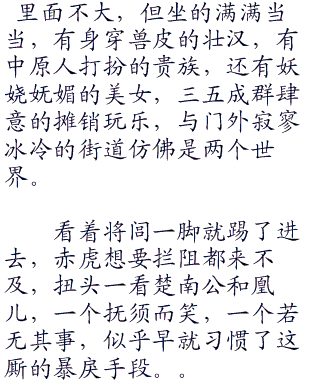 里面不大，但坐的满满当
当，有身穿兽皮的壮汉，有
中原人打扮的贵族，还有妖
娆妩媚的美女，三五成群肆
意的摊销玩乐，与门外寂寥
冰冷的街道仿佛是两个世
界。
看着将闾一脚就踢了进
去，赤虎想要拦阻都来不
及，扭头一看楚南公和凰
儿，一个抚须而笑，一个若
无其事，似乎早就习惯了这
厮的暴戾手段。。